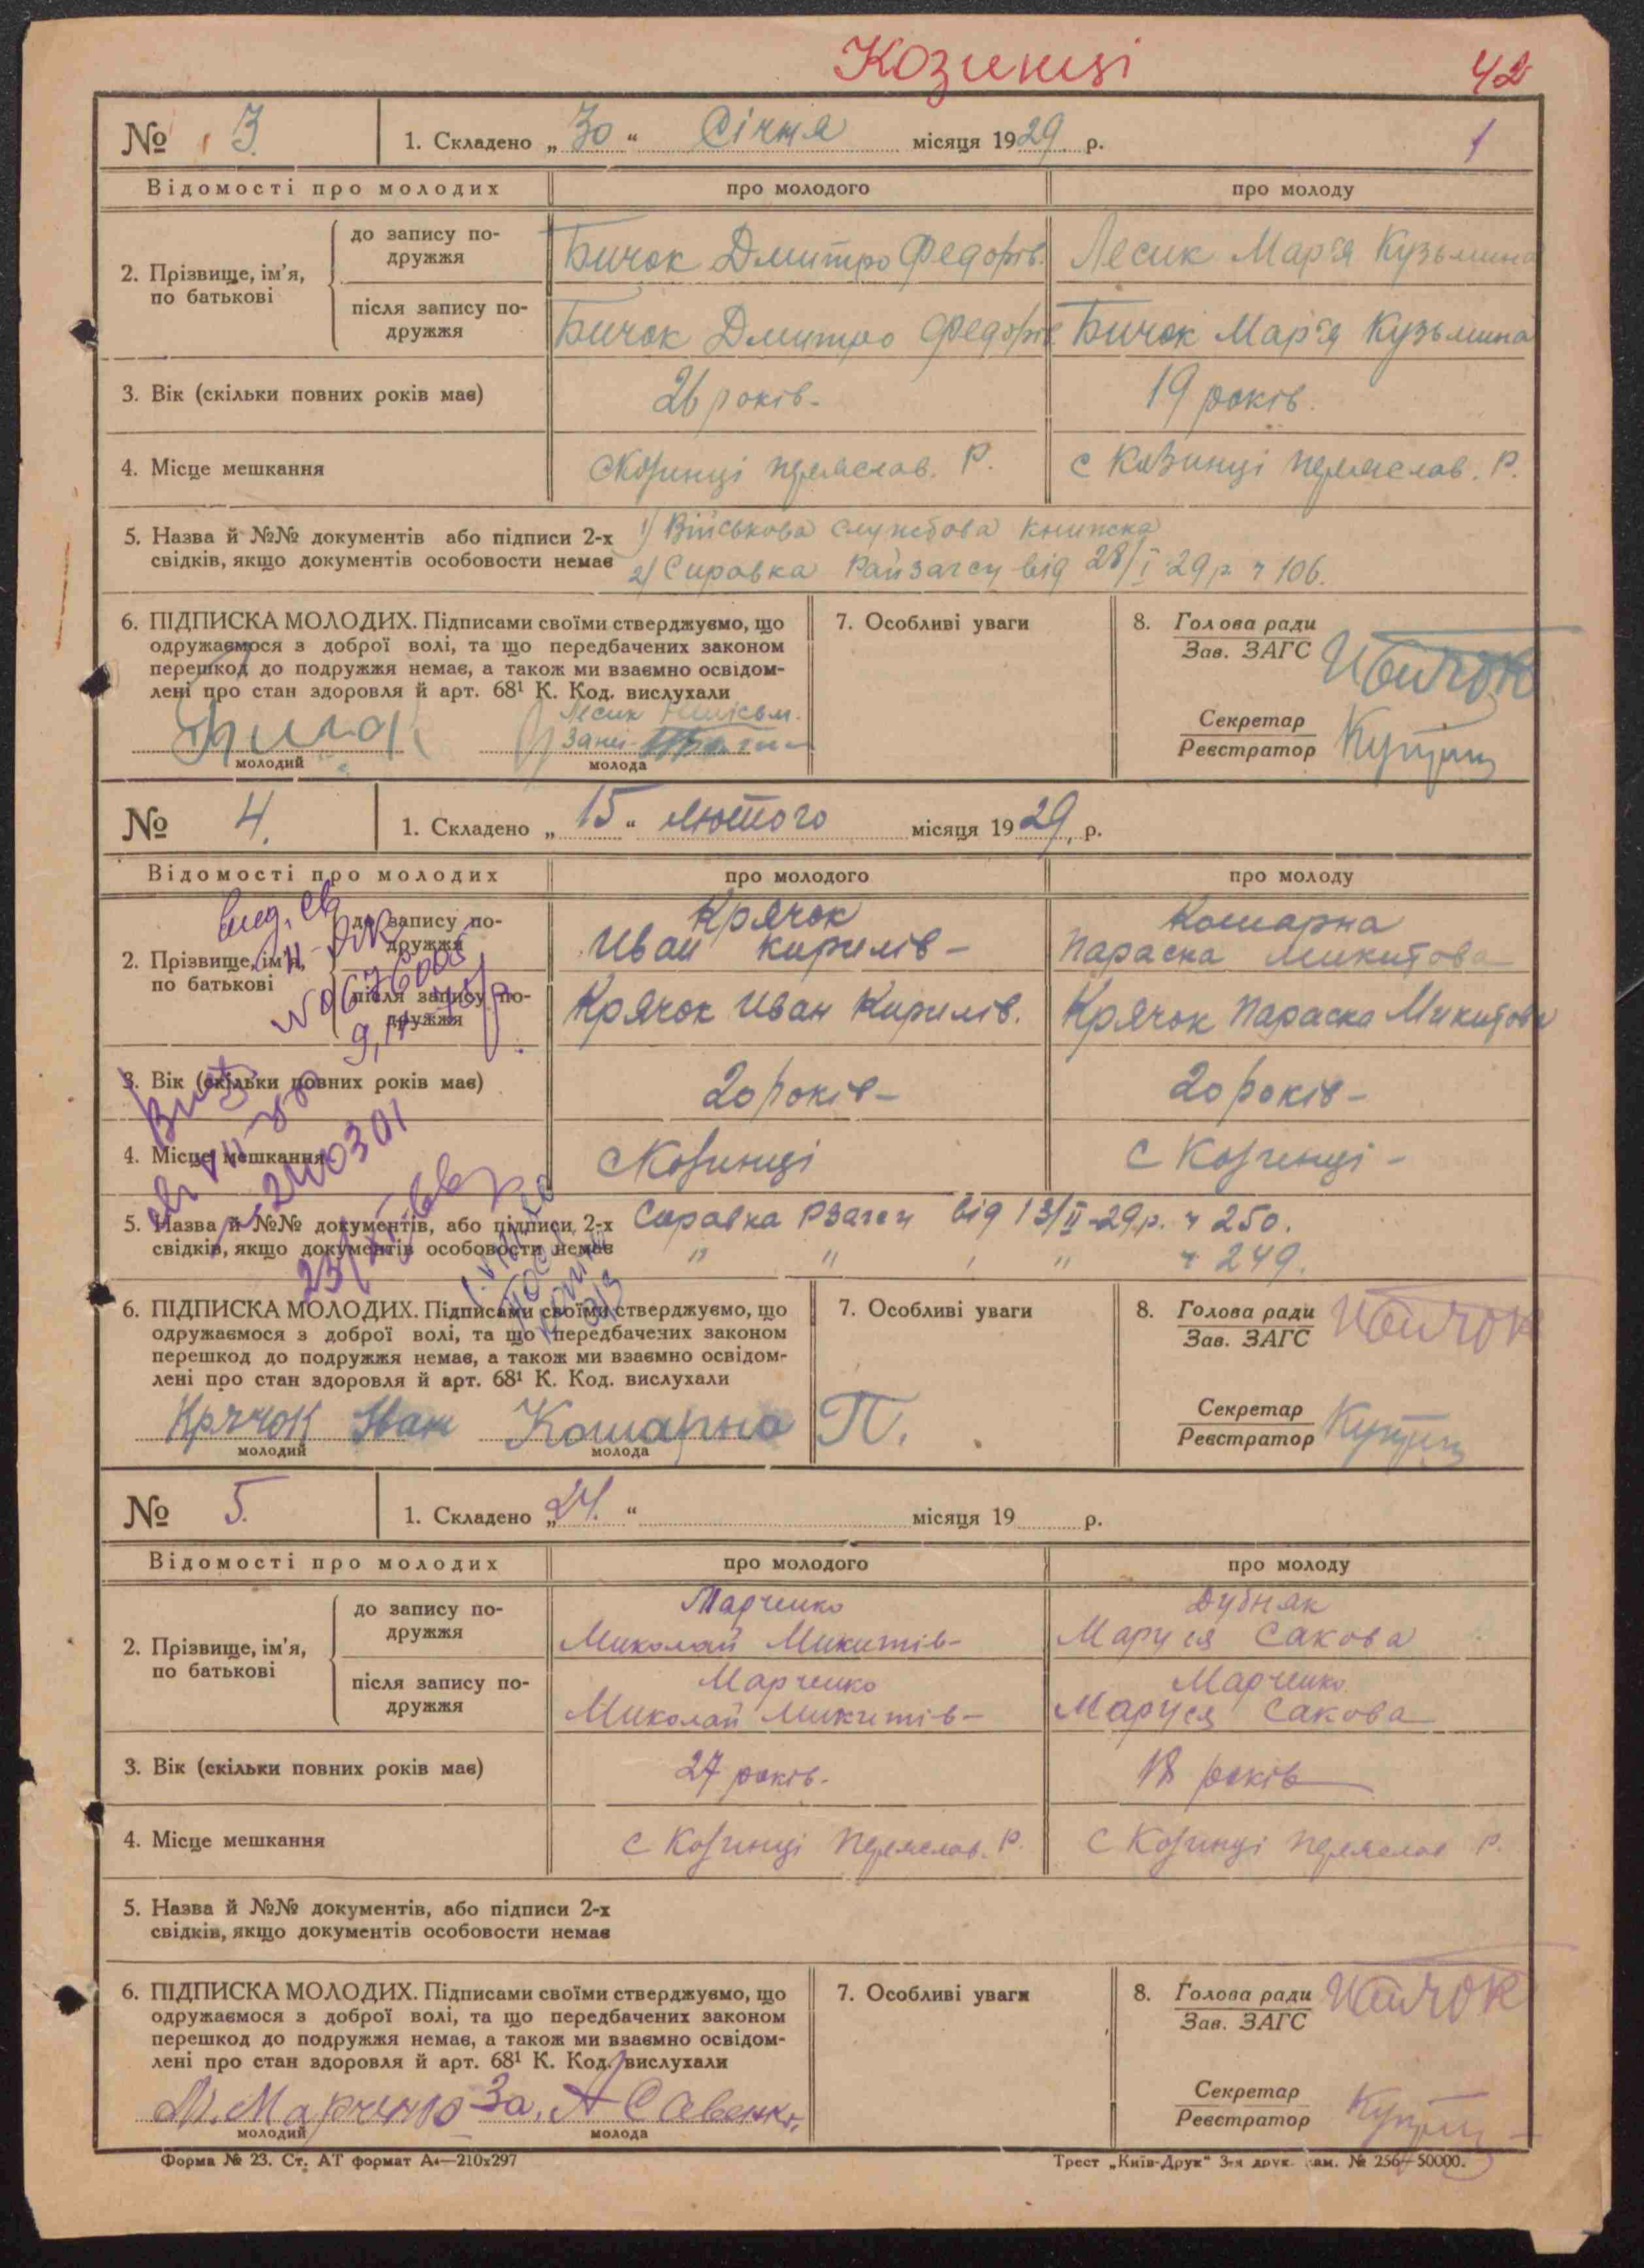 Козинці 42
№ 3. 1. Складено „30“ Січня місяця 1929 р. 1
Відомості про молодих про молодого про молоду
2. Прізвище, ім’я, по батькові
до запису подружжя Бичок Дмитро Федорів. Лесик Мар'я Кузьмина
після запису подружжя Бичок Дмитро Федорів Бичок Мар'я Кузьмина
3. Вік (скільки повних років має) 26 років- 19 років.
4. Місце мешкання с Козинці Переяслав. Р. с Козинці Переяслав. Р.
5. Назва й №№ документів або підписи 2-х 1) Військова службова книжка
свідків, якщо документів особовости немає 2) Справка Райзагсу від 28/I 29 р ч 106.
6. ПІДПИСКА МОЛОДИХ. Підписами своїми стверджуємо, що
одружаємося з доброї волі, та що передбачених законом
перешкод до подружжя немає, а також ми взаємно освідом-
лені про стан здоровля й арт. 68¹ К. Код. вислухали
Лесик
Бичок За неї
молодий молода
7. Особливі уваги
8. Голова ради Бичок
Зав. ЗАГС
Секретар
Реєстратор
№ 4. 1. Складено „15“ лютого місяця 1929 р.
Відомості про молодих про молодого про молоду
2. Прізвище, ім’я, по батькові
до запису подружжя Крячок Иван Кирилів- Кошарна Параска Микитова
після запису подружжя Крячок Иван Кирилів. Крячок Параска Микитова
3. Вік (скільки повних років має) 20 років- 20 років-
4. Місце мешкання с Козинці с Козинці-
5. Назва й №№ документів, або підписи 2-х Справка РЗагсу від 13/II-29р. ч 250.
свідків, якщо документів особовости немає " " " " ч 249.
6. ПІДПИСКА МОЛОДИХ. Підписами своїми стверджуємо, що
одружаємося з доброї волі, та що передбачених законом
перешкод до подружжя немає, а також ми взаємно освідом-
лені про стан здоровля й арт. 68¹ К. Код. вислухали
Крячок Иван Кошарна П.
молодий молода
7. Особливі уваги
8. Голова ради Бичок
Зав. ЗАГС
Секретар
Реєстратор
№ 5. 1. Складено „24.“ місяця 19 р.
Відомості про молодих про молодого про молоду
2. Прізвище, ім’я, по батькові
до запису подружжя Марченко Миколай Микитів- Дубняк Маруся Сакова
після запису подружжя Марченко Миколай Микитів- Марченко Маруся Сакова
3. Вік (скільки повних років має) 27 років- 18 років
4. Місце мешкання с Козинці Переяслав. Р. с Козинці Переяслав Р.
5. Назва й №№ документів, або підписи 2-х
свідків, якщо документів особовости немає
6. ПІДПИСКА МОЛОДИХ. Підписами своїми стверджуємо, що
одружаємося з доброї волі, та що передбачених законом
перешкод до подружжя немає, а також ми взаємно освідом-
лені про стан здоровля й арт. 68¹ К. Код. вислухали
М. Марченко За. А Савенко.
молодий молода
7. Особливі уваги
8. Голова ради Бичок
Зав. ЗАГС
Секретар
Реєстратор
Форма № 23. Ст. АТ формат А₄—210х297 Трест „Київ-Друк“ 3-я друк. зам. № 256—50000.